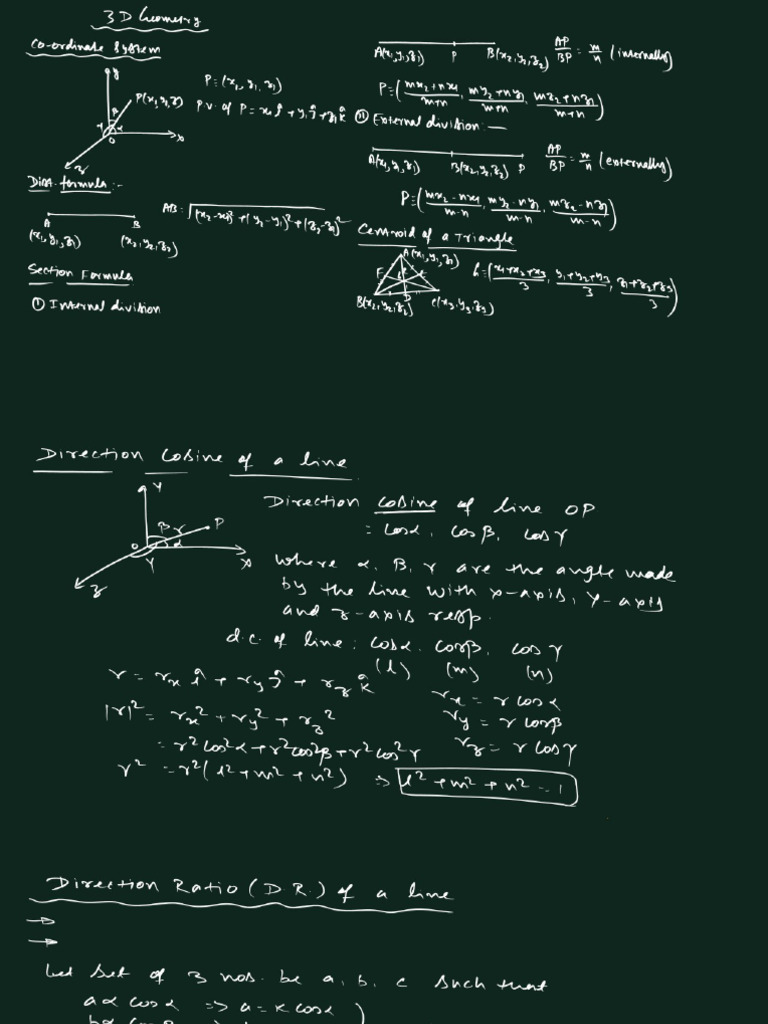 3D Geometry
Co-ordinate System
y
P(x, y, z)
β
γ α
o
x
z
P = (x₁, y₁, z₁)
P.V. of P = x₁î + y₁ĵ + z₁k̂
Dist. formula :-
A B
(x₁, y₁, z₁) (x₂, y₂, z₂)
AB = √((x₂-x₁)² + (y₂-y₁)² + (z₂-z₁)²)
Section Formula
① Internal division
A(x₁, y₁, z₁) P B(x₂, y₂, z₂) AP/BP = m/n (internally)
P = ((mx₂+nx₁)/(m+n), (my₂+ny₁)/(m+n), (mz₂+nz₁)/(m+n))
② External division: —
A(x₁, y₁, z₁) B(x₂, y₂, z₂) P AP/BP = m/n (externally)
P = ((mx₂-nx₁)/(m-n), (my₂-ny₁)/(m-n), (mz₂-nz₁)/(m-n))
Centroid of a Triangle
A(x₁, y₁, z₁)
F E
D
B(x₂, y₂, z₂) C(x₃, y₃, z₃)
G = ((x₁+x₂+x₃)/3, (y₁+y₂+y₃)/3, (z₁+z₂+z₃)/3)
Direction Cosine of a line
Y
β r P
O α
γ
X
z
Direction cosine of line OP
= cosα, cosβ, cosγ
where α, β, γ are the angle made
by the line with x-axis, y-axis
and z-axis resp.
d.c. of line : cosα, cosβ, cosγ
(l) (m) (n)
r = rx î + ry ĵ + rz k̂
rx = r cosα
|r|² = rx² + ry² + rz²
ry = r cosβ
= r²cos²α + r²cos²β + r²cos²γ
rz = r cosγ
r² = r²(l² + m² + n²) ⇒ l² + m² + n² = 1
Direction Ratio (D.R.) of a line
→
→
Let set of 3 nos. be a, b, c such that
a α cosα ⇒ a = k cosα